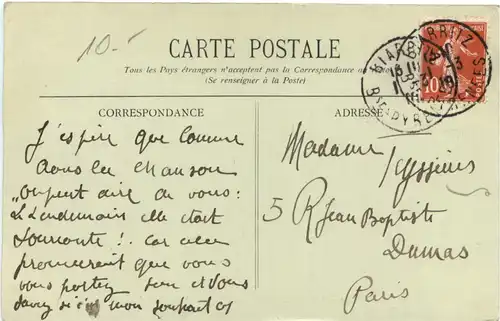 10.-
CARTE POSTALE
Tous les Pays étrangers n'acceptent pas la Correspondance au
(Se renseigner à la Poste)
CORRESPONDANCE
J'espère que comme
dans la chanson
„ on peut dire de vous:
Le Lendemain elle était
souriante !. Car cela
prouverait que vous
vous portez bien et vous
savez si c'est mon souhait
ADRESSE
Madame
5 R Jean Baptiste
Dumas
Paris
BIARRITZ
BSES PYRENEES
10